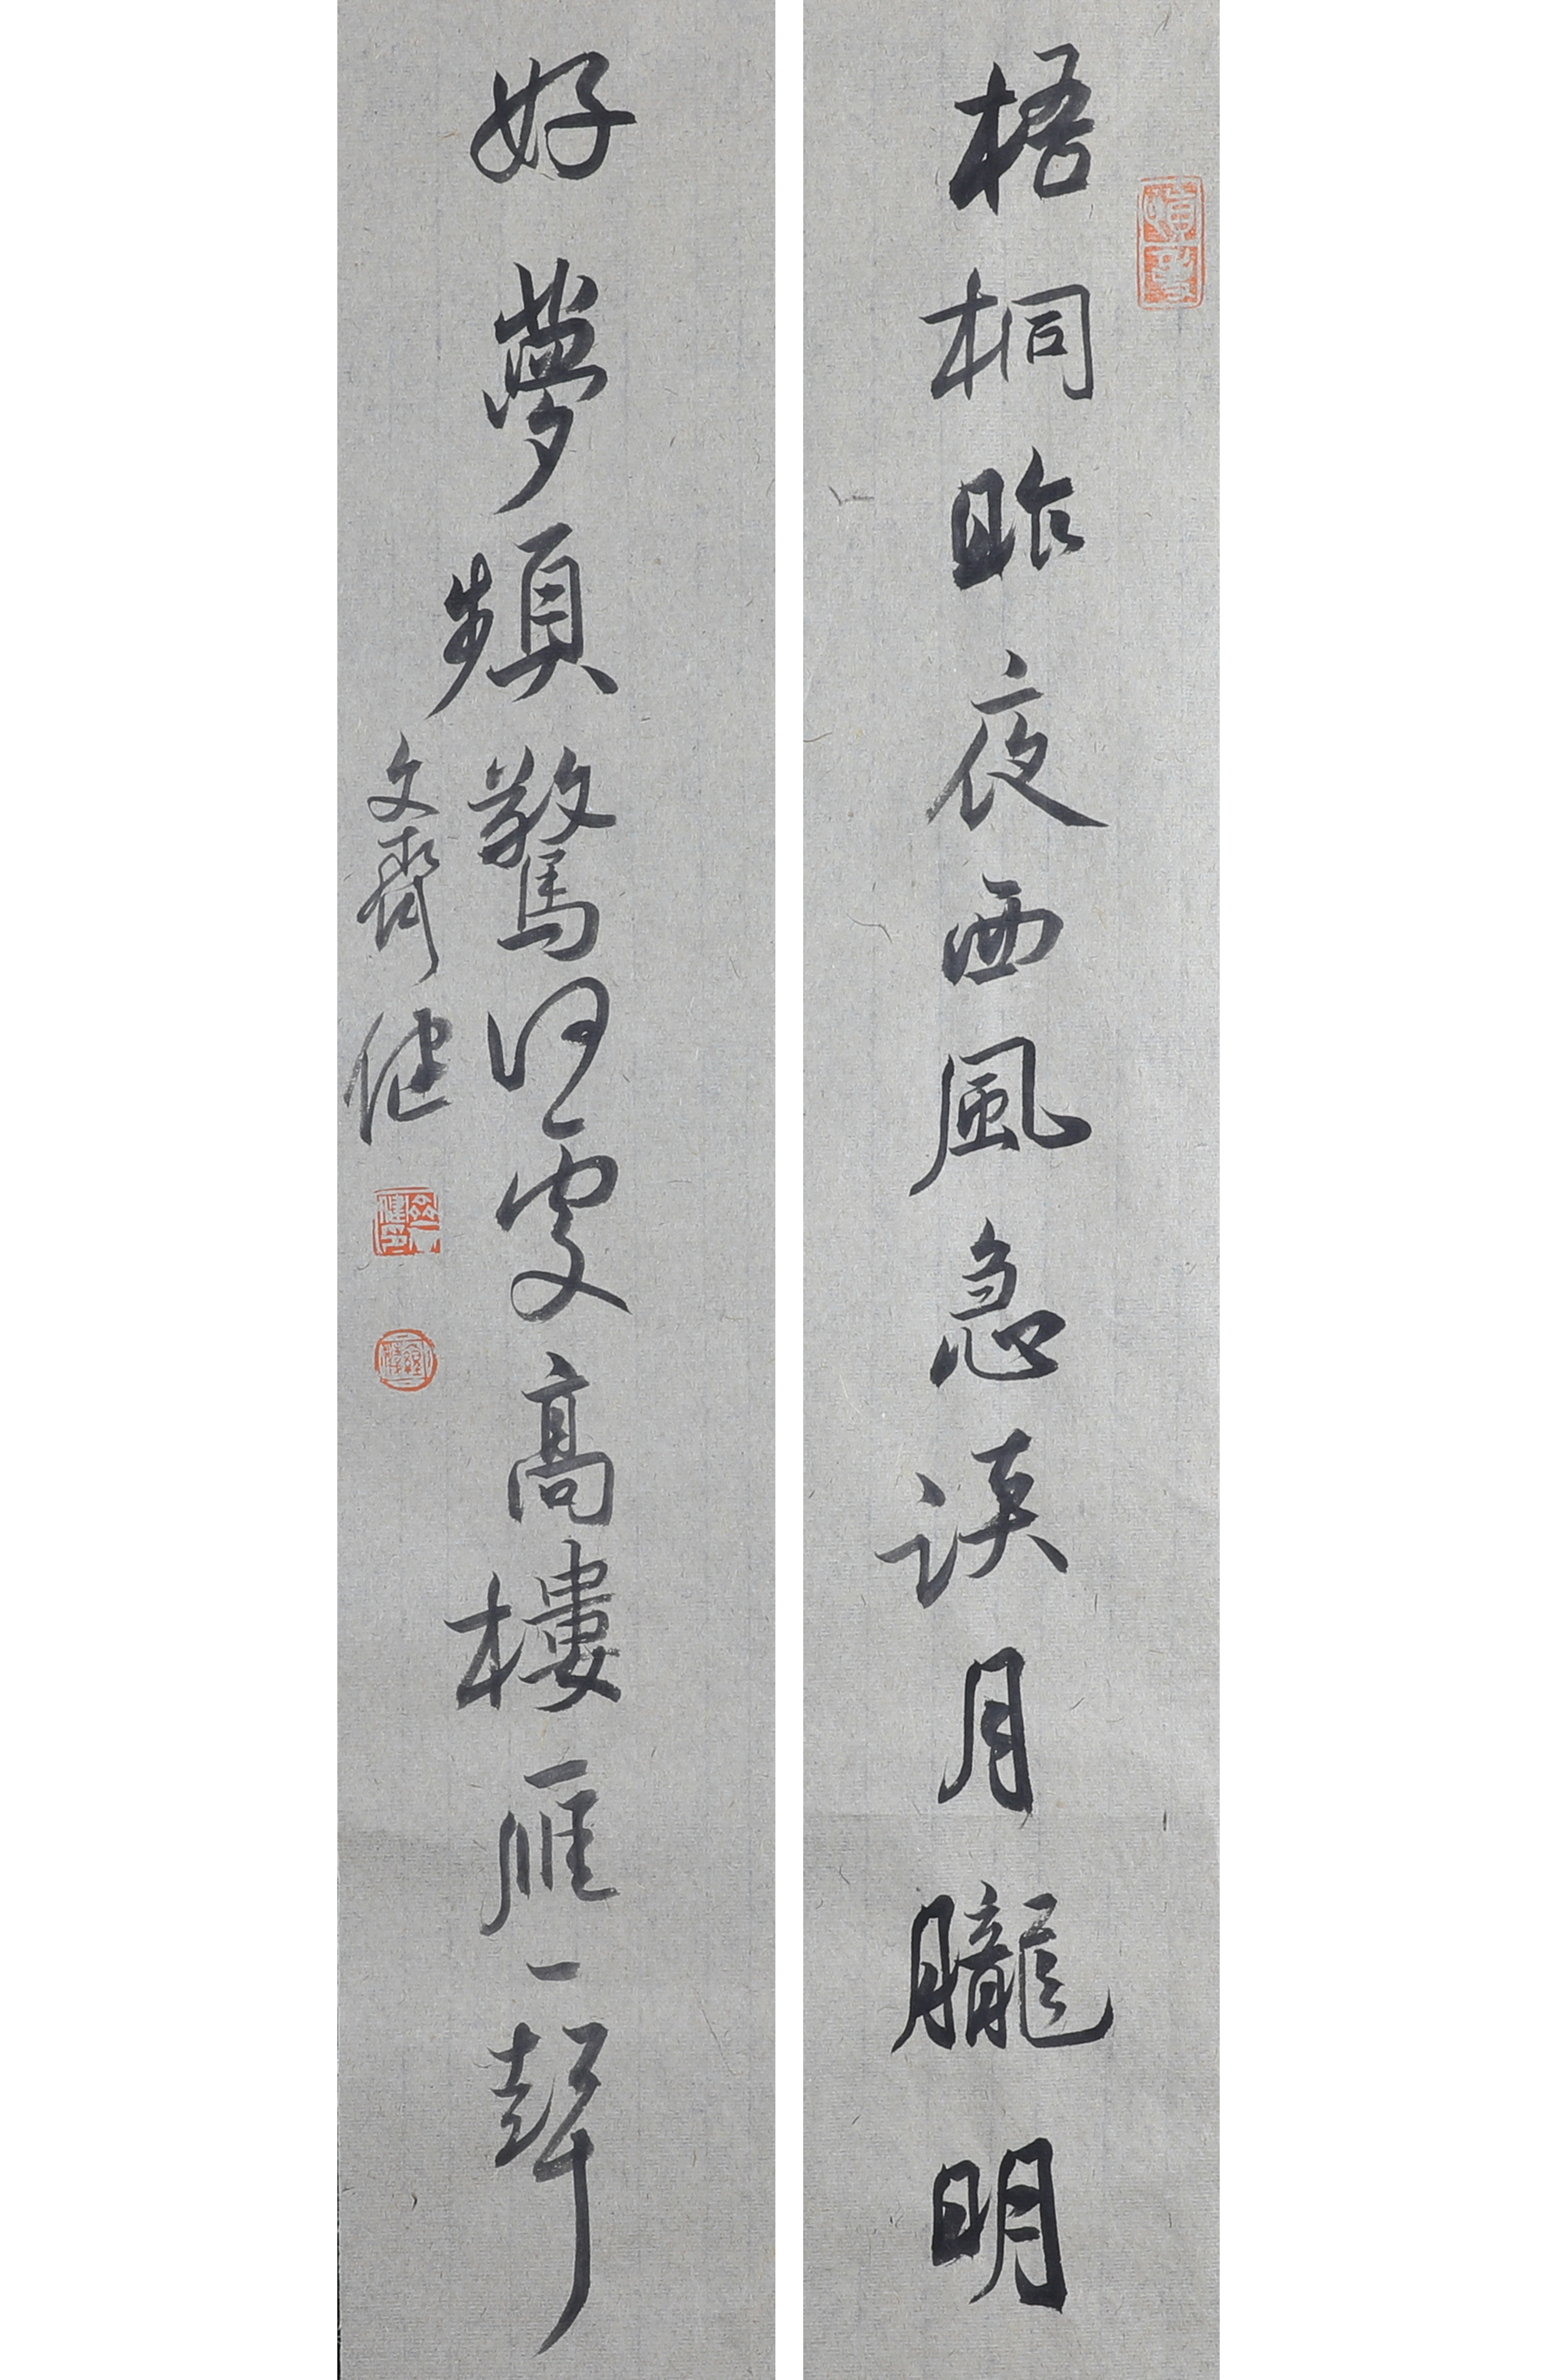 梧桐昨夜西風急淡月朧明
好夢頻驚何處高樓雁一聲
文齊健